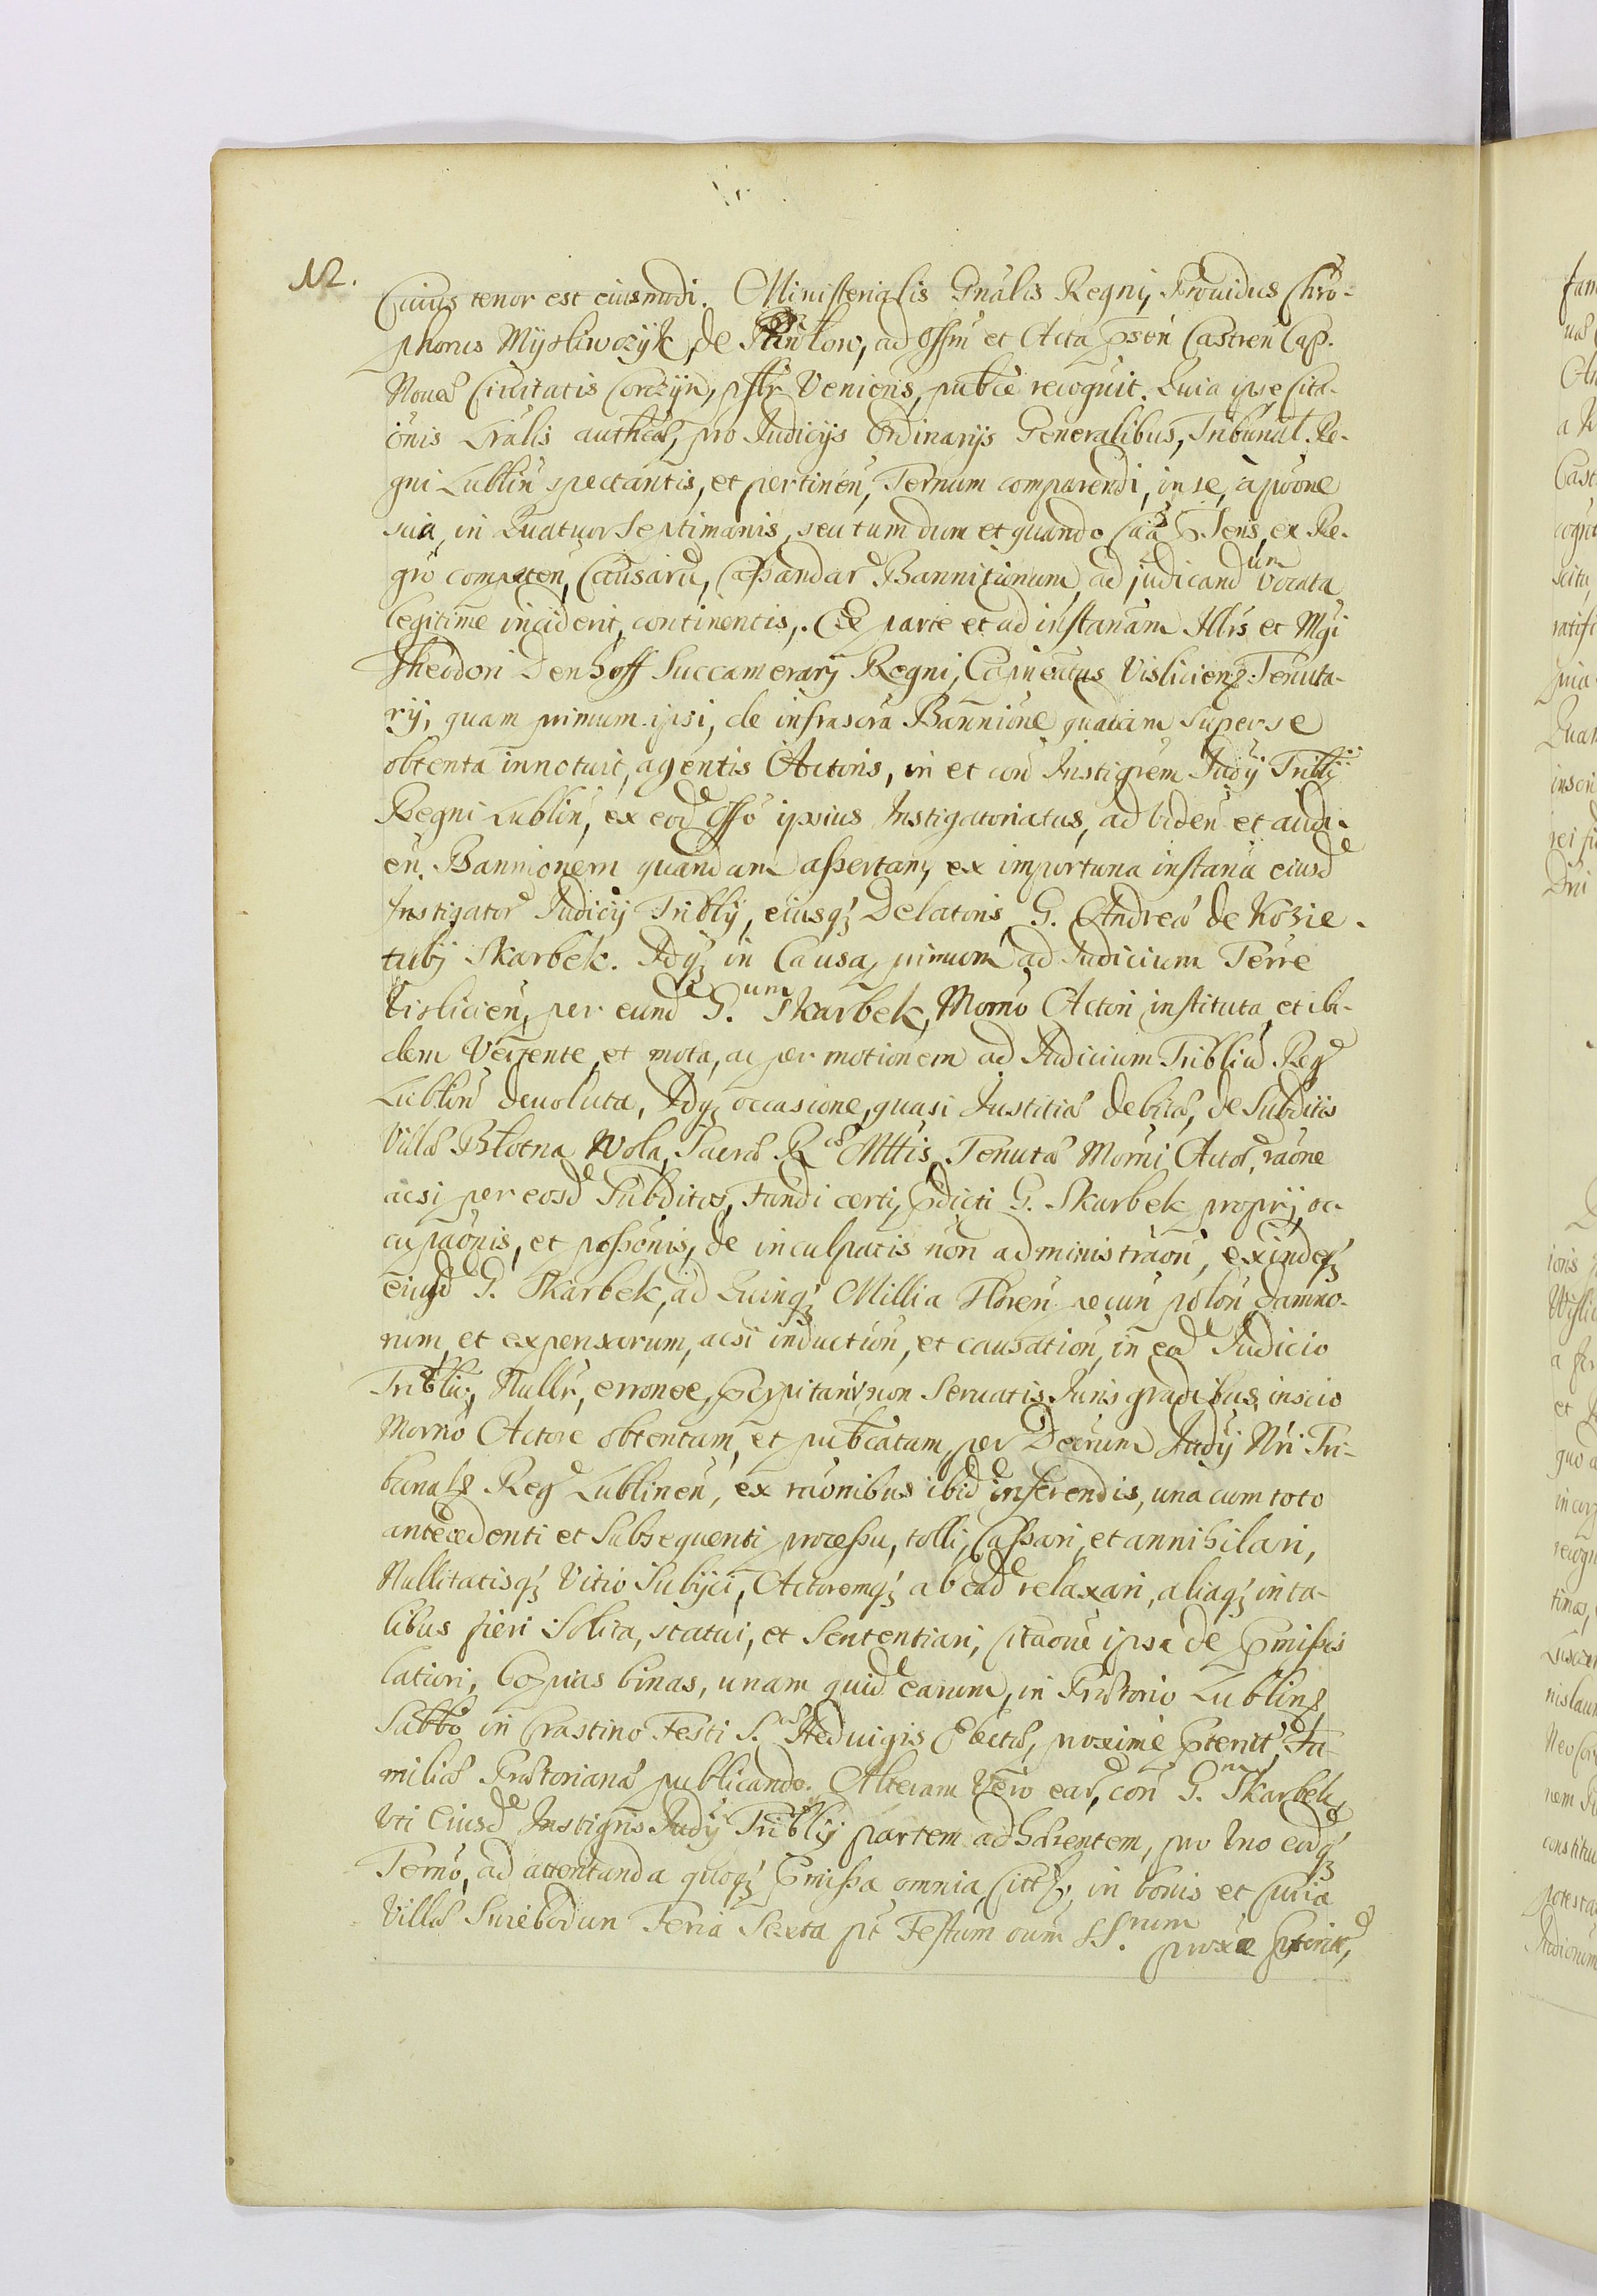 N2.
Cuius tenor est eiusmodi. Ministerialis Gnalis Regni, Prouidus Chro-
phorus Mysliwczyk de ad Offm et Acta Pnsen Castren Cap.
Nouae Ciuitatis Corczyn, psltr Veniens, publce recognit. Quia ipse Cita-
onis Lralis autheae, pro Judicijs Ordinarijs Generalibus, Tribunal. Re-
gni Lublin spectantis, et pertinen, Ternum comparendi, in se, a poone
sua, in Quatuor Septimanis, seu tum dum et quando Caa Psens, ex Re-
gro competen, Causaru, Cassandar Bannitionum, ad judicand vocata
legitime inciderit, continentis, Ex parte et ad instanam Illris et Mgi
Theodori Denhoff Succamerarij Regni, Capneatus Vislicien: Tenuta-
rij, quam primum ipsi, de infrascra Bannione quadam super se
obtenta innotuit, agentis Actoris, in et con Instigrem Judij Triblij
Regni Lublin, ex eod Offo ipsius Instigatoriatus, ad viden et audi-
en. Bannionem quandam assertam, ex importuna instania eiusd
Instigator Judicij Triblij, eiusq; Delatoris G. Andreae de Kozie-
tuly Skarbek. Idq; in Causa, primum ad Judicium Terre
Vislicien, per eund G.um Skarbek, Morno Actori instituta, et ibi-
dem Vertente, et mota, ac per motionem ad Judicium Tribliu Reg
Lublin deuoluta, Idq; occasione, quasi Justitiae debitae, de Subditis
Villae Błotna Wola, Sacrae R.ae Mttis, Tenutae Morni Actor, raone
acsi per eosd Subditos, Fundi certi, Pdicti G. Skarbek proprij, oc-
cupaonis, et possonis, de inculpatis non administraon, exindeq;
eiusd G. Skarbek, ad Quinq; Millia Floren pecun polon damno-
rum, et expensarum, acsi induction, et causation, in eod Judicio
Triblio, Nullr, erronee, Pcipitanr, non seruatis Juris gradibus, inscio
Morno Actore obtentam, et publcatam, per Decrum Judij Nri Tri-
bunals Reg Lublinen, ex raonibus ibid inferendis, una cum toto
antecedenti et Subsequenti processu, tolli, Cassari, et annihilari,
Nullitatisq; Vitio Subijci, Actoremq; ab ead relaxari, aliaq; in ta-
libus fieri Solita, statui, et Sententiari, Citaone ipsa de Pmissis
latiori, Copias binas, unam quid earum, in Prtorio Lublin
Sabbo in Crastino Festi S.ae Heduigis Electae, proxime Pterit, Fa-
miliae Prtorianae publicando. Alteram Vero ear, con G.m Skarbek,
Vti Eiusd Instigris Judij Triblij partem adhaerentem, pro Vno eodq;
Terno, ad attentanda quoq; Pmissa omnia Citt, in bonis et Curia
Villae Feria Sexta pt Festum oum SS.rum proxe Pterit,